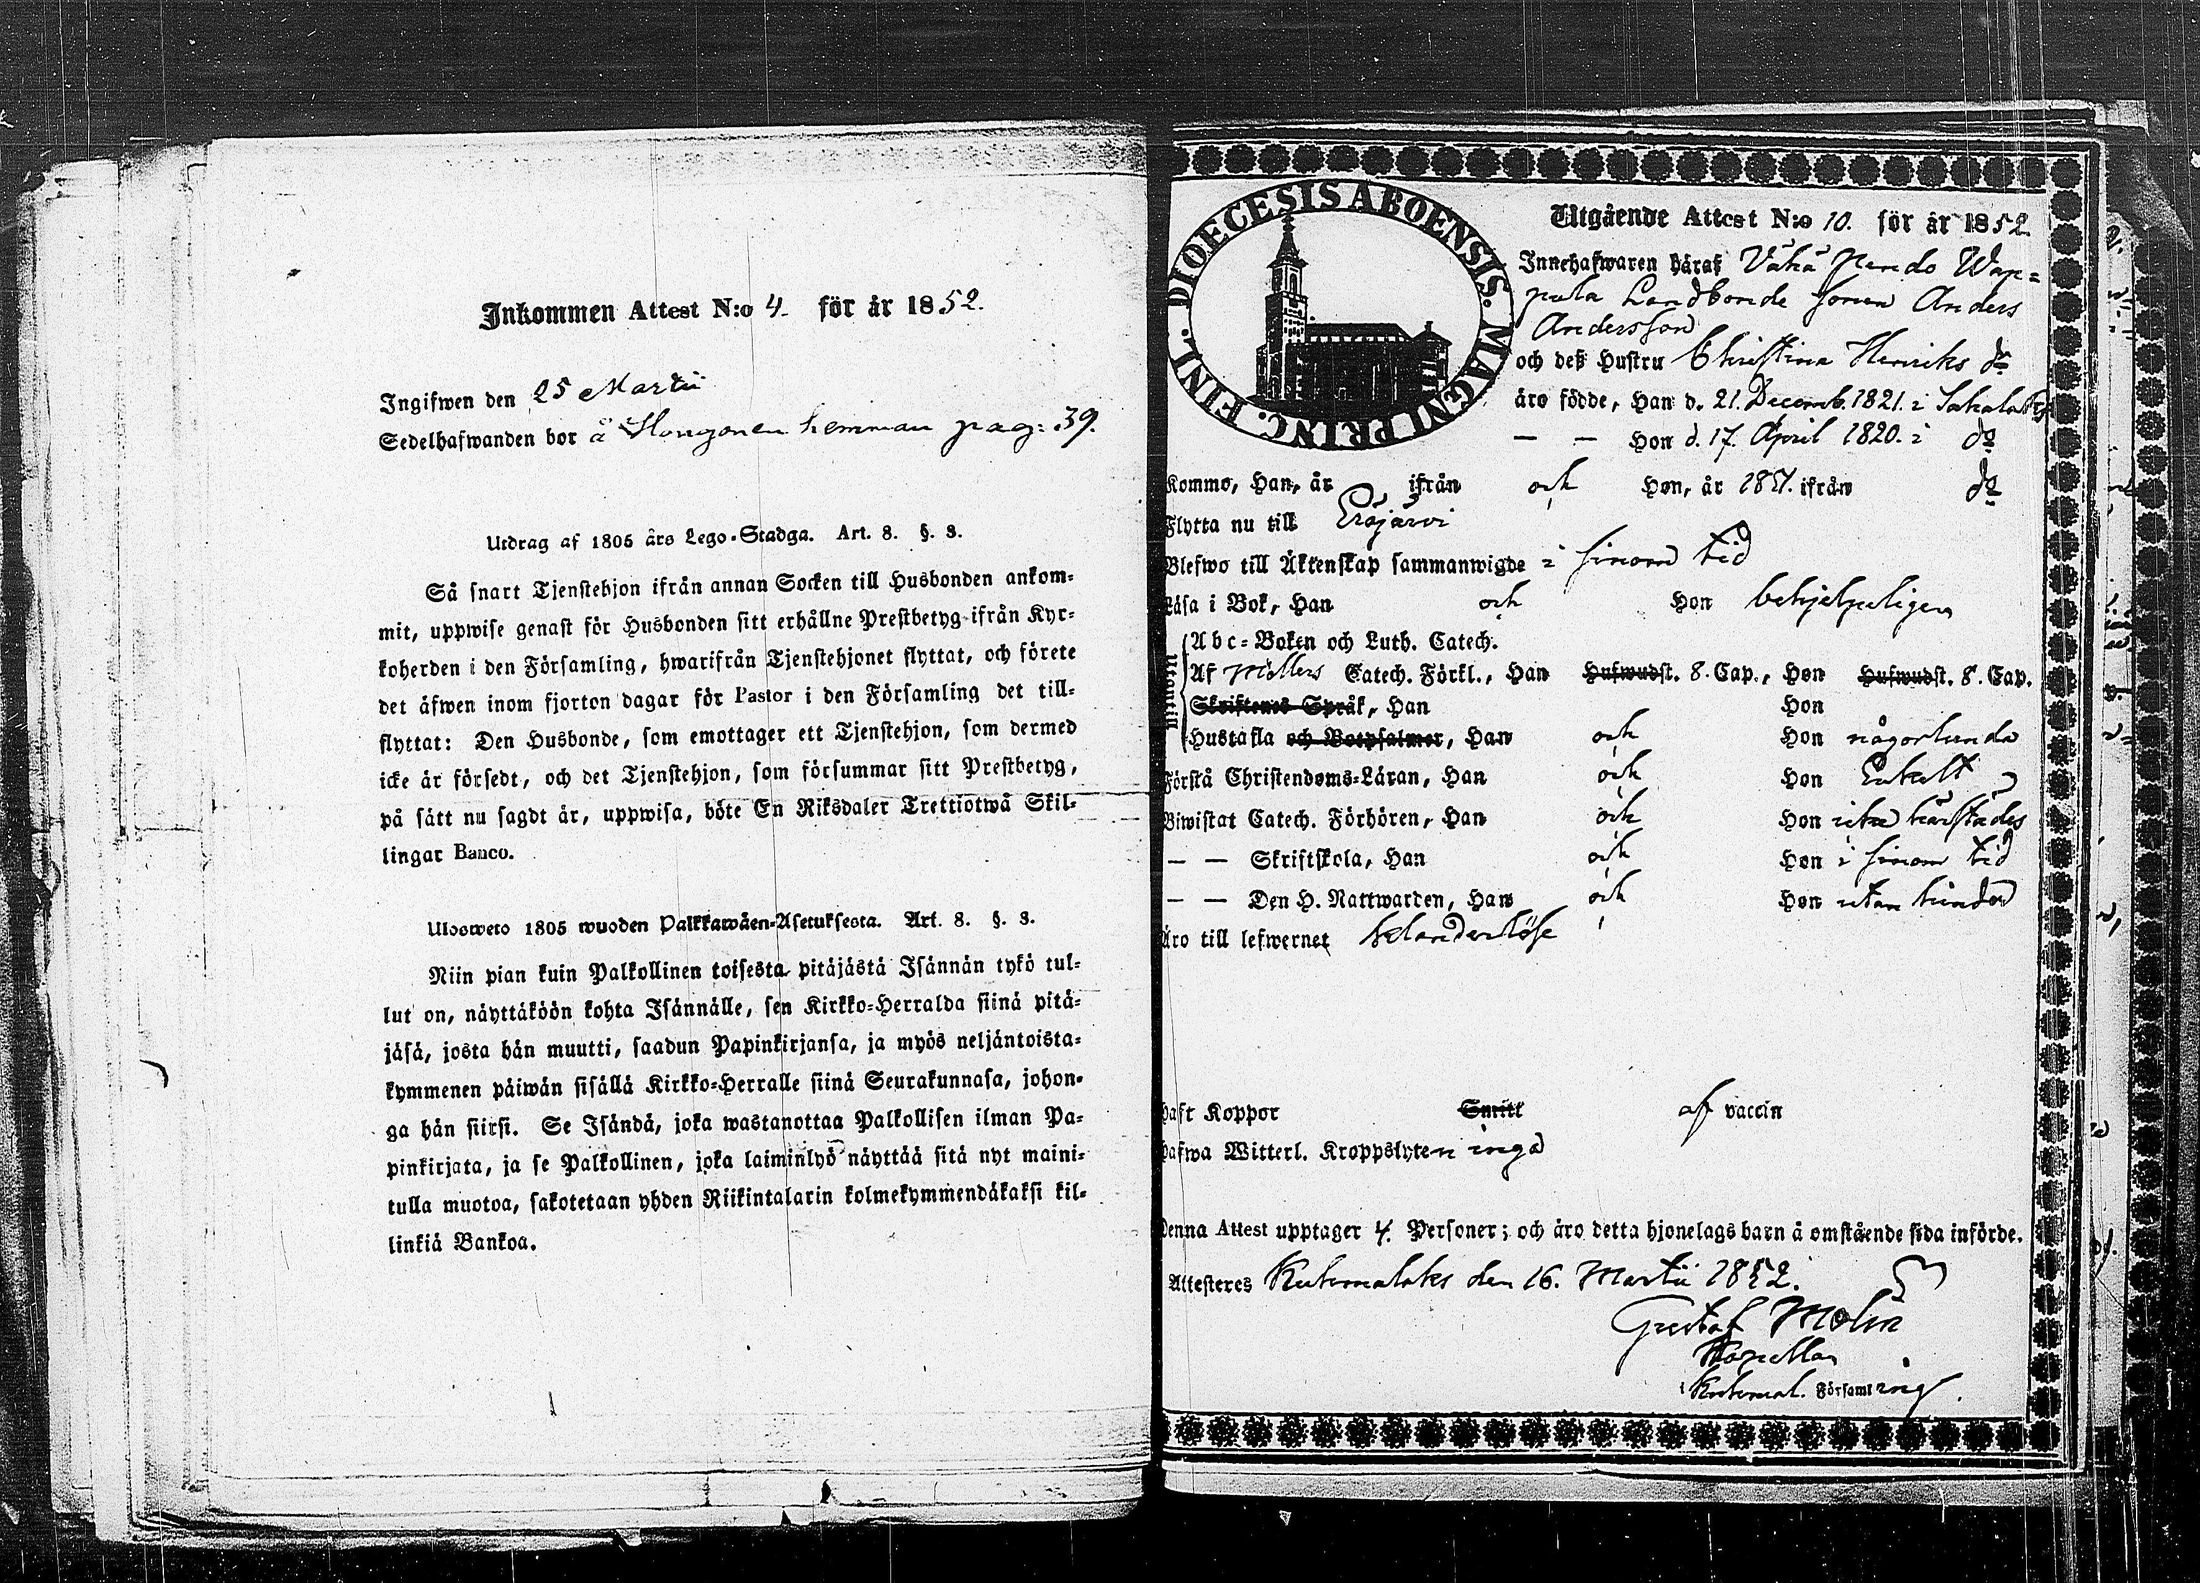 Inkommen Attest N:o 4. för år 1852.
Ingifwen den 25 Martii
Sedelhafwanden bor å Hongonen hemman pag: 39.
Utdrag af 1805 års Lego-Stadga. Art. 8. §. 3.
Så snart Tjenstehjon ifrån annan Socken till Husbonden ankom-
mit, uppwise genast för Husbonden sitt erhållne Prestbetyg ifrån Kyr-
koherden i den Församling, hwarifrån Tjenstehjonet flyttat, och förete
det äfwen inom fjorton dagar för Pastor i den Församling det till-
flyttat: Den Husbonde, som emottager ett Tjenstehjon, som dermed
icke är försedt, och det Tjenstehjon, som försummar sitt Prestbetyg,
på sätt nu sagdt är, uppwisa, böte En Riksdaler Trettiotwå Skil-
lingar Banco.
Ulosweto 1805 wuoden Palkkawäen-Asetuksesta. Art. 8. §. 3.
Niin pian kuin Palkollinen toisesta pitäjästä Isännän tykö tul-
lut on, näyttäköön kohta Isännälle, sen Kirkko-Herralda siinä pitä-
jäsä, josta hän muutti, saadun Papinkirjansa, ja myös neljäntoista-
kymmenen päiwän sisällä Kirkko-Herralle siinä Seurakunnasa, johon-
ga hän siirsi. Se Isändä, joka wastanottaa Palkollisen ilman Pa-
pinkirjata, ja se Palkollinen, joka laiminlyö näyttää sitä nyt maini-
tulla muotoa, sakotetaan yhden Riikintalarin kolmekymmendäkaksi kil-
linkiä Bankoa.
DIOECESIS ABOENSIS. MAGNI PRINC. FINL.
Utgående Attest N:o 10. för år 1852
Innehafwaren häraf Vähä Hendo Wap-
pula Landbonde sonen Anders
Andersson
och deß Hustru Christina Henriks dr
äro födde, Han d. 21. Decemb. 1821. i
— — Hon d. 17. April 1820. i do
Kommo, Han, år ifrån och Hon, år 1851. ifrån do
Flytta nu till Eräjärvi
Blefwo till Äktenskap sammanwigde i sinom tid
Läsa i Bok, Han och Hon behjelpeligen
Utontil
Abc-Boken och Luth. Catech.
Af Möllers Catech. Förkl., Han Hufwudst. 8. Cap., Hon Hufwudst. 8. Cap.
Skriftenes Språk, Han Hon
Hustafla och Botpsalmer, Han och Hon någorlunda
Förstå Christendoms-Läran, Han och Hon Enkelt
Biwistat Catech. Förhören, Han och Hon härstädes
— — Skriftskola, Han och Hon i sinom tid
— — Den H. Nattwarden, Han och Hon utan hinder
Äro till lefwernet klanderlöse
haft Koppor Smitt af vaccin
hafwa Witterl. Kroppslyten inga
Denna Attest upptager 4. Personer; och äro detta hjonelags barn å omstående sida införde.
Attesteres Kuhmalaks den 16. Martii 1852.
Gustaf Molin
Kapellan
i Kuhmal. Församling.